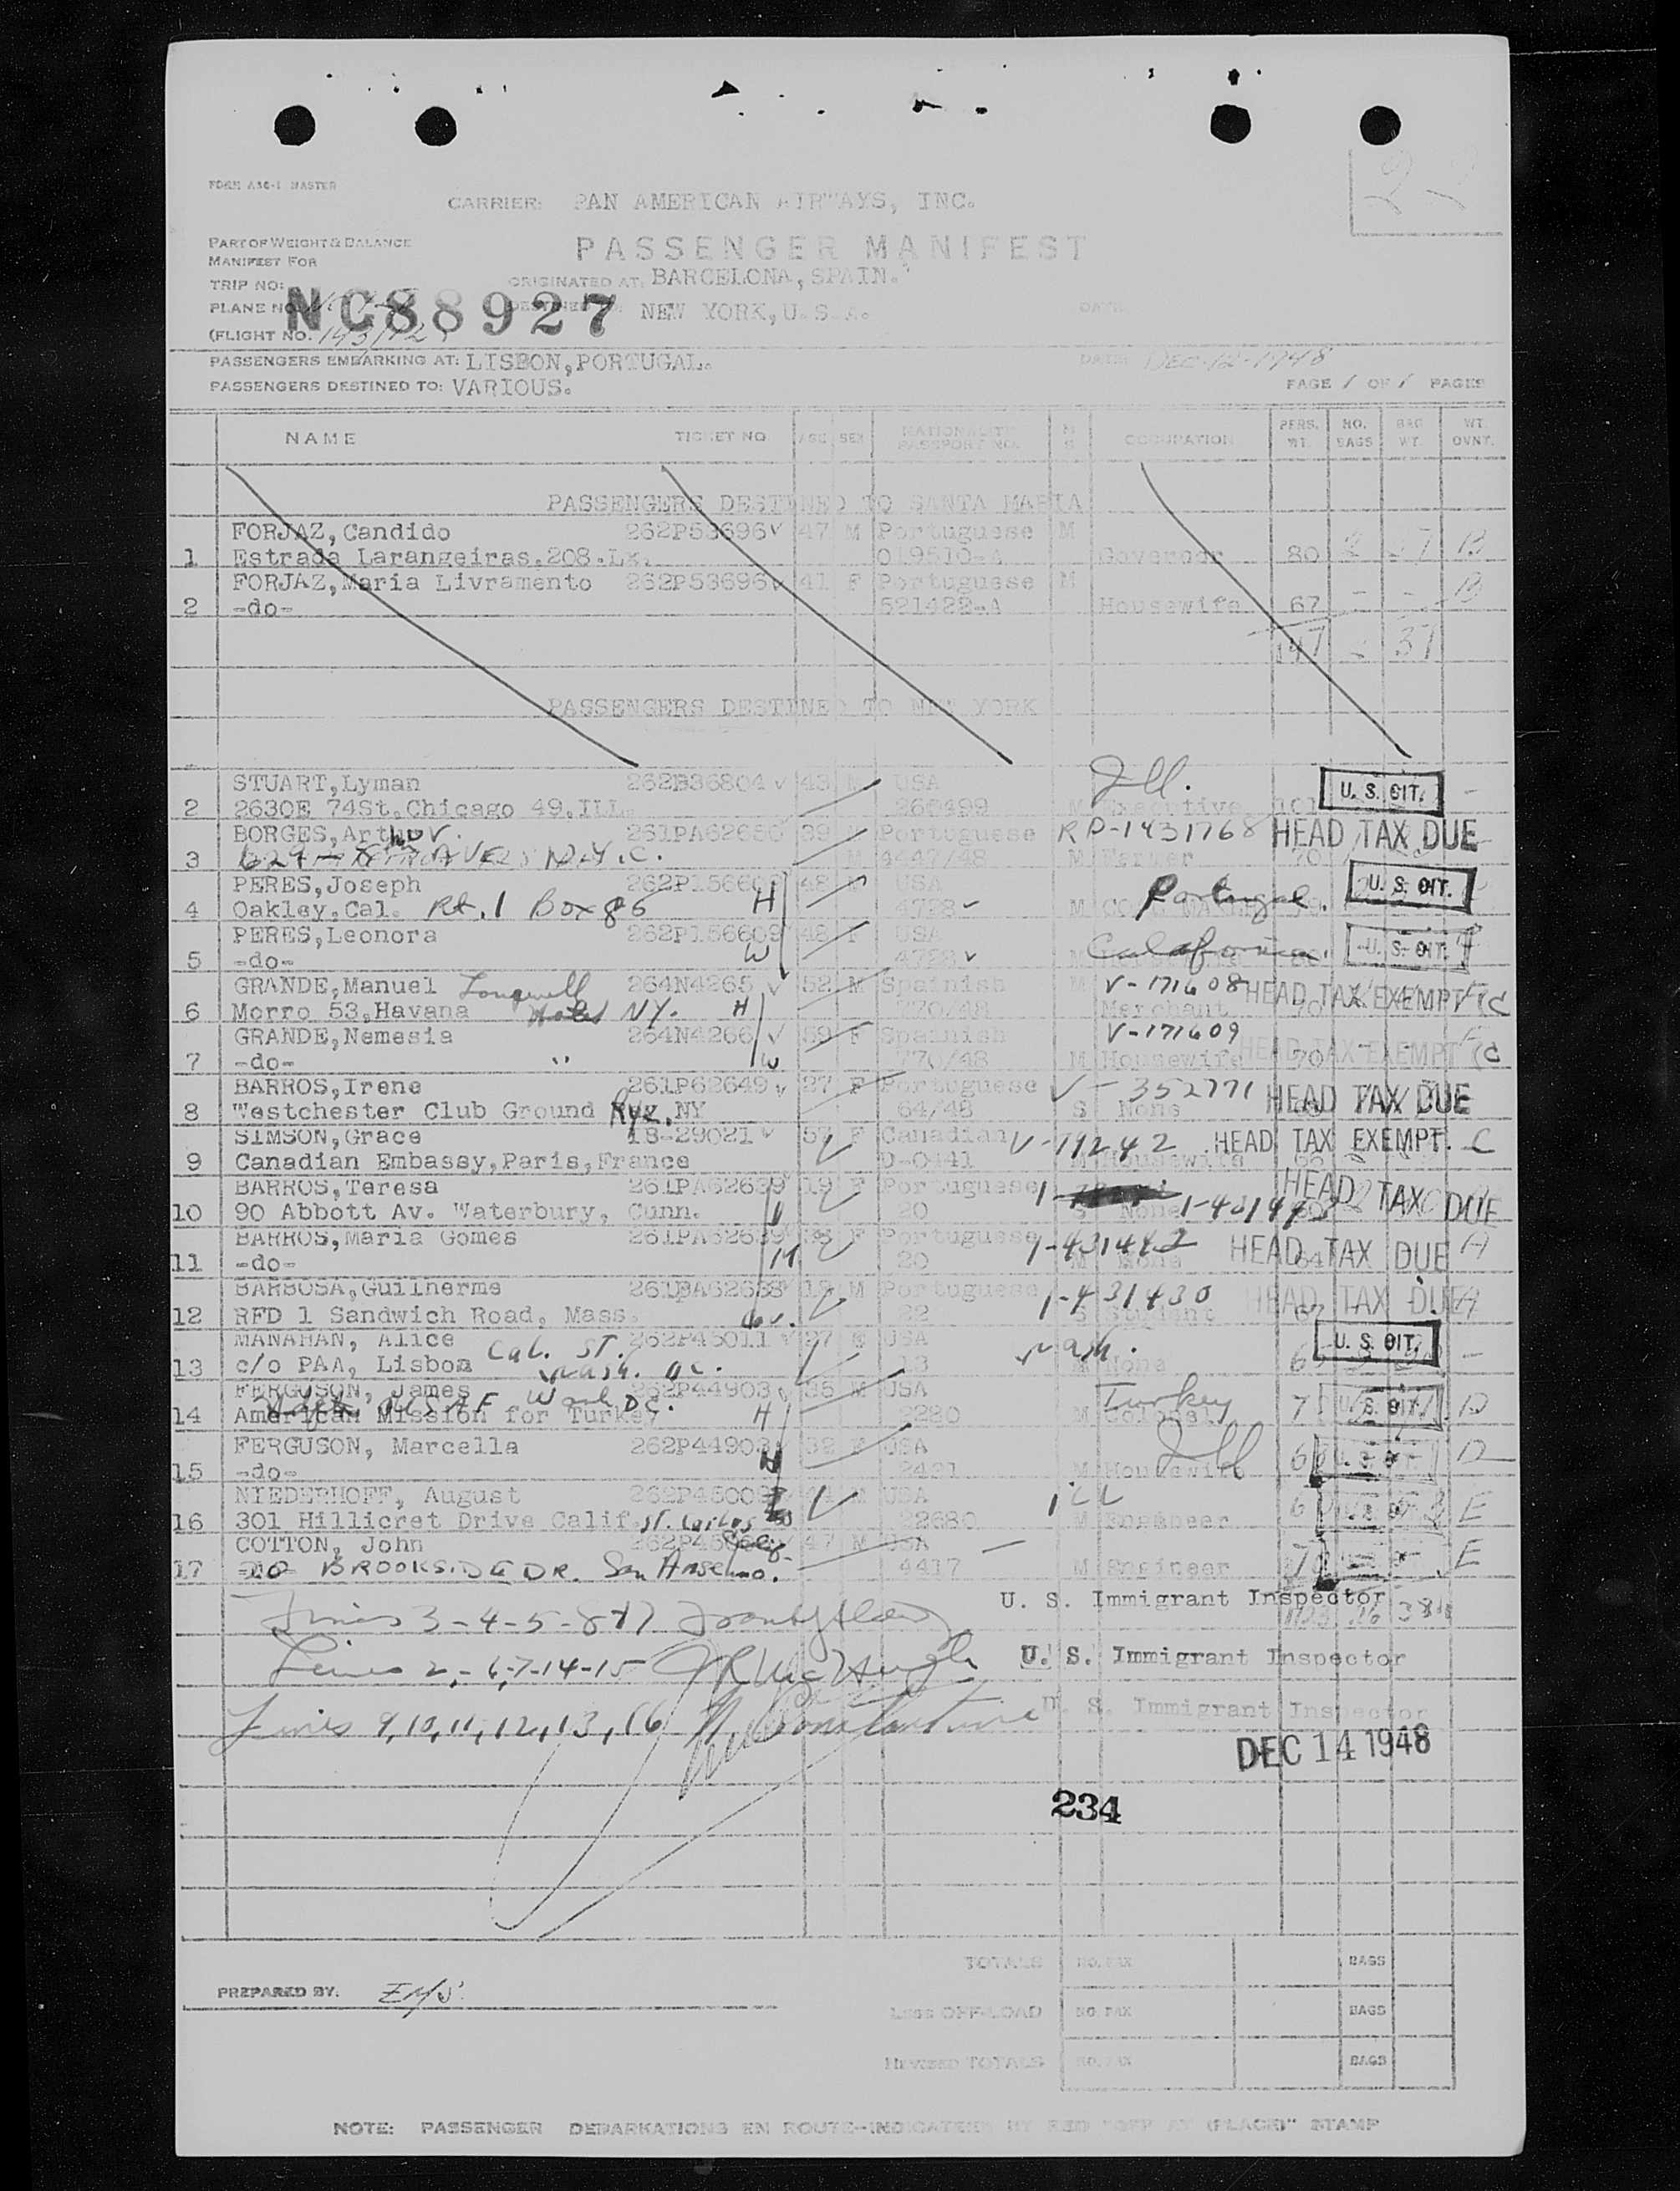 22
FORM ASC-1 MASTER
CARRIER: PAN AMERICAN AIRWAYS, INC.
PART OF WEIGHT & BALANCE
MANIFEST FOR
PASSENGER MANIFEST
TRIP NO:
ORIGINATED AT: BARCELONA, SPAIN.
PLANE NO. NC88927 NEW YORK, U.S.A. DATE
(FLIGHT NO.
PASSENGERS EMBARKING AT: LISBON, PORTUGAL. DATE: DEC-12-1948
PASSENGERS DESTINED TO: VARIOUS. PAGE 1 OF 1 PAGES
NAME TICKET NO AGE SEX NATIONALITY PASSPORT NO. M S OCCUPATION PERS. WT. NO. BAGS BAG WT. WT. OVNT.
PASSENGERS DESTINED TO SANTA MARIA
FORJAZ, Candido 262P53696 47 M Portuguese M
1 Estrada Larangeiras.208.Lx. 019510-A Governor 80 2 37 B
FORJAZ, Maria Livramento 262P53696 41 F Portuguese M
2 -do- 521422-A Housewife 67 - - B
147 37
PASSENGERS DESTINED TO NEW YORK
STUART, Lyman 262P36804 43 M USA Ill. U. S. CIT.
2 2630E 74St. Chicago 49.ILL. 260499 M Executive 101 -
BORGES, Arthur. 261PA62650 39 Portuguese RP-1431768 HEAD TAX DUE
3 N.Y.C. M 4447/48 M Farmer 70
PERES, Joseph 262P156609 48 M USA Portugal. U. S. CIT.
4 Oakley. Cal. Rt. 1 Box 86 H 4728 M
PERES, Leonora 262P156609 48 F USA California U. S. CIT.
5 -do- W 4728 M
GRANDE, Manuel Longwell 264N4265 52 M Spainish M V-171608 HEAD TAX EXEMPT C
6 Morro 53, Havana Hotel NY. H 770/48 Merchant 70
GRANDE, Nemesia 264N4266 59 F Spainish V-171609 HEAD TAX EXEMPT C
7 -do- " W 770/48 M Housewife 70
BARROS, Irene 261P62649 27 F Portuguese V-352771 HEAD TAX DUE
8 Westchester Club Ground Rye. NY 64/48 S None
SIMSON, Grace 18-29021 57 F Canadian V-19242 HEAD TAX EXEMPT. C
9 Canadian Embassy, Paris, France D-0441 M Housewife
BARROS, Teresa 261PA62639 19 F Portuguese HEAD TAX DUE
10 90 Abbott Av. Waterbury, Conn. 20 S None
BARROS, Maria Gomes 261PA62639 F Portuguese HEAD TAX DUE A
11 -do- M 20 M None 64
BARBOSA, Guilherme 261PA62638 18 M Portuguese 1-431430 HEAD TAX DUE A
12 RFD 1 Sandwich Road, Mass. 22 S Student 67
MANAHAN, Alice Cal. St. 262P45011 27 F USA Wash. U. S. CIT.
13 c/o PAA, Lisboa Wash. DC. M None -
FERGUSON, James 262P44903 35 M USA Turkey U. S. CIT.
14 American Mission for Turkey Wash DC. H 2220 M Colonel D
FERGUSON, Marcella 262P44903 32 F USA Ill
15 -do- 2421 M Housewife D
NIEDERHOFF, August M USA ILL
16 301 Hillicret Drive Calif. 22680 M Engineer E
COTTON, John 47 M USA
17 -do- BROOKSIDE DR. San Anselmo. 4417 M Engineer E
U. S. Immigrant Inspector
Lines 3-4-5-8+17
Lines 2,-6,-7-14-15 J R McHugh U. S. Immigrant Inspector
Lines 9,10,11,12,13,16 Constantine U. S. Immigrant Inspector
DEC 14 1948
234
TOTALS NO. PAX BAGS
PREPARED BY:
LESS OFF-LOAD NO. PAX BAGS
REVISED TOTALS NO. PAX BAGS
NOTE: PASSENGER DEBARKATIONS EN ROUTE--INDICATED BY RED "OFF AT (PLACE)" STAMP